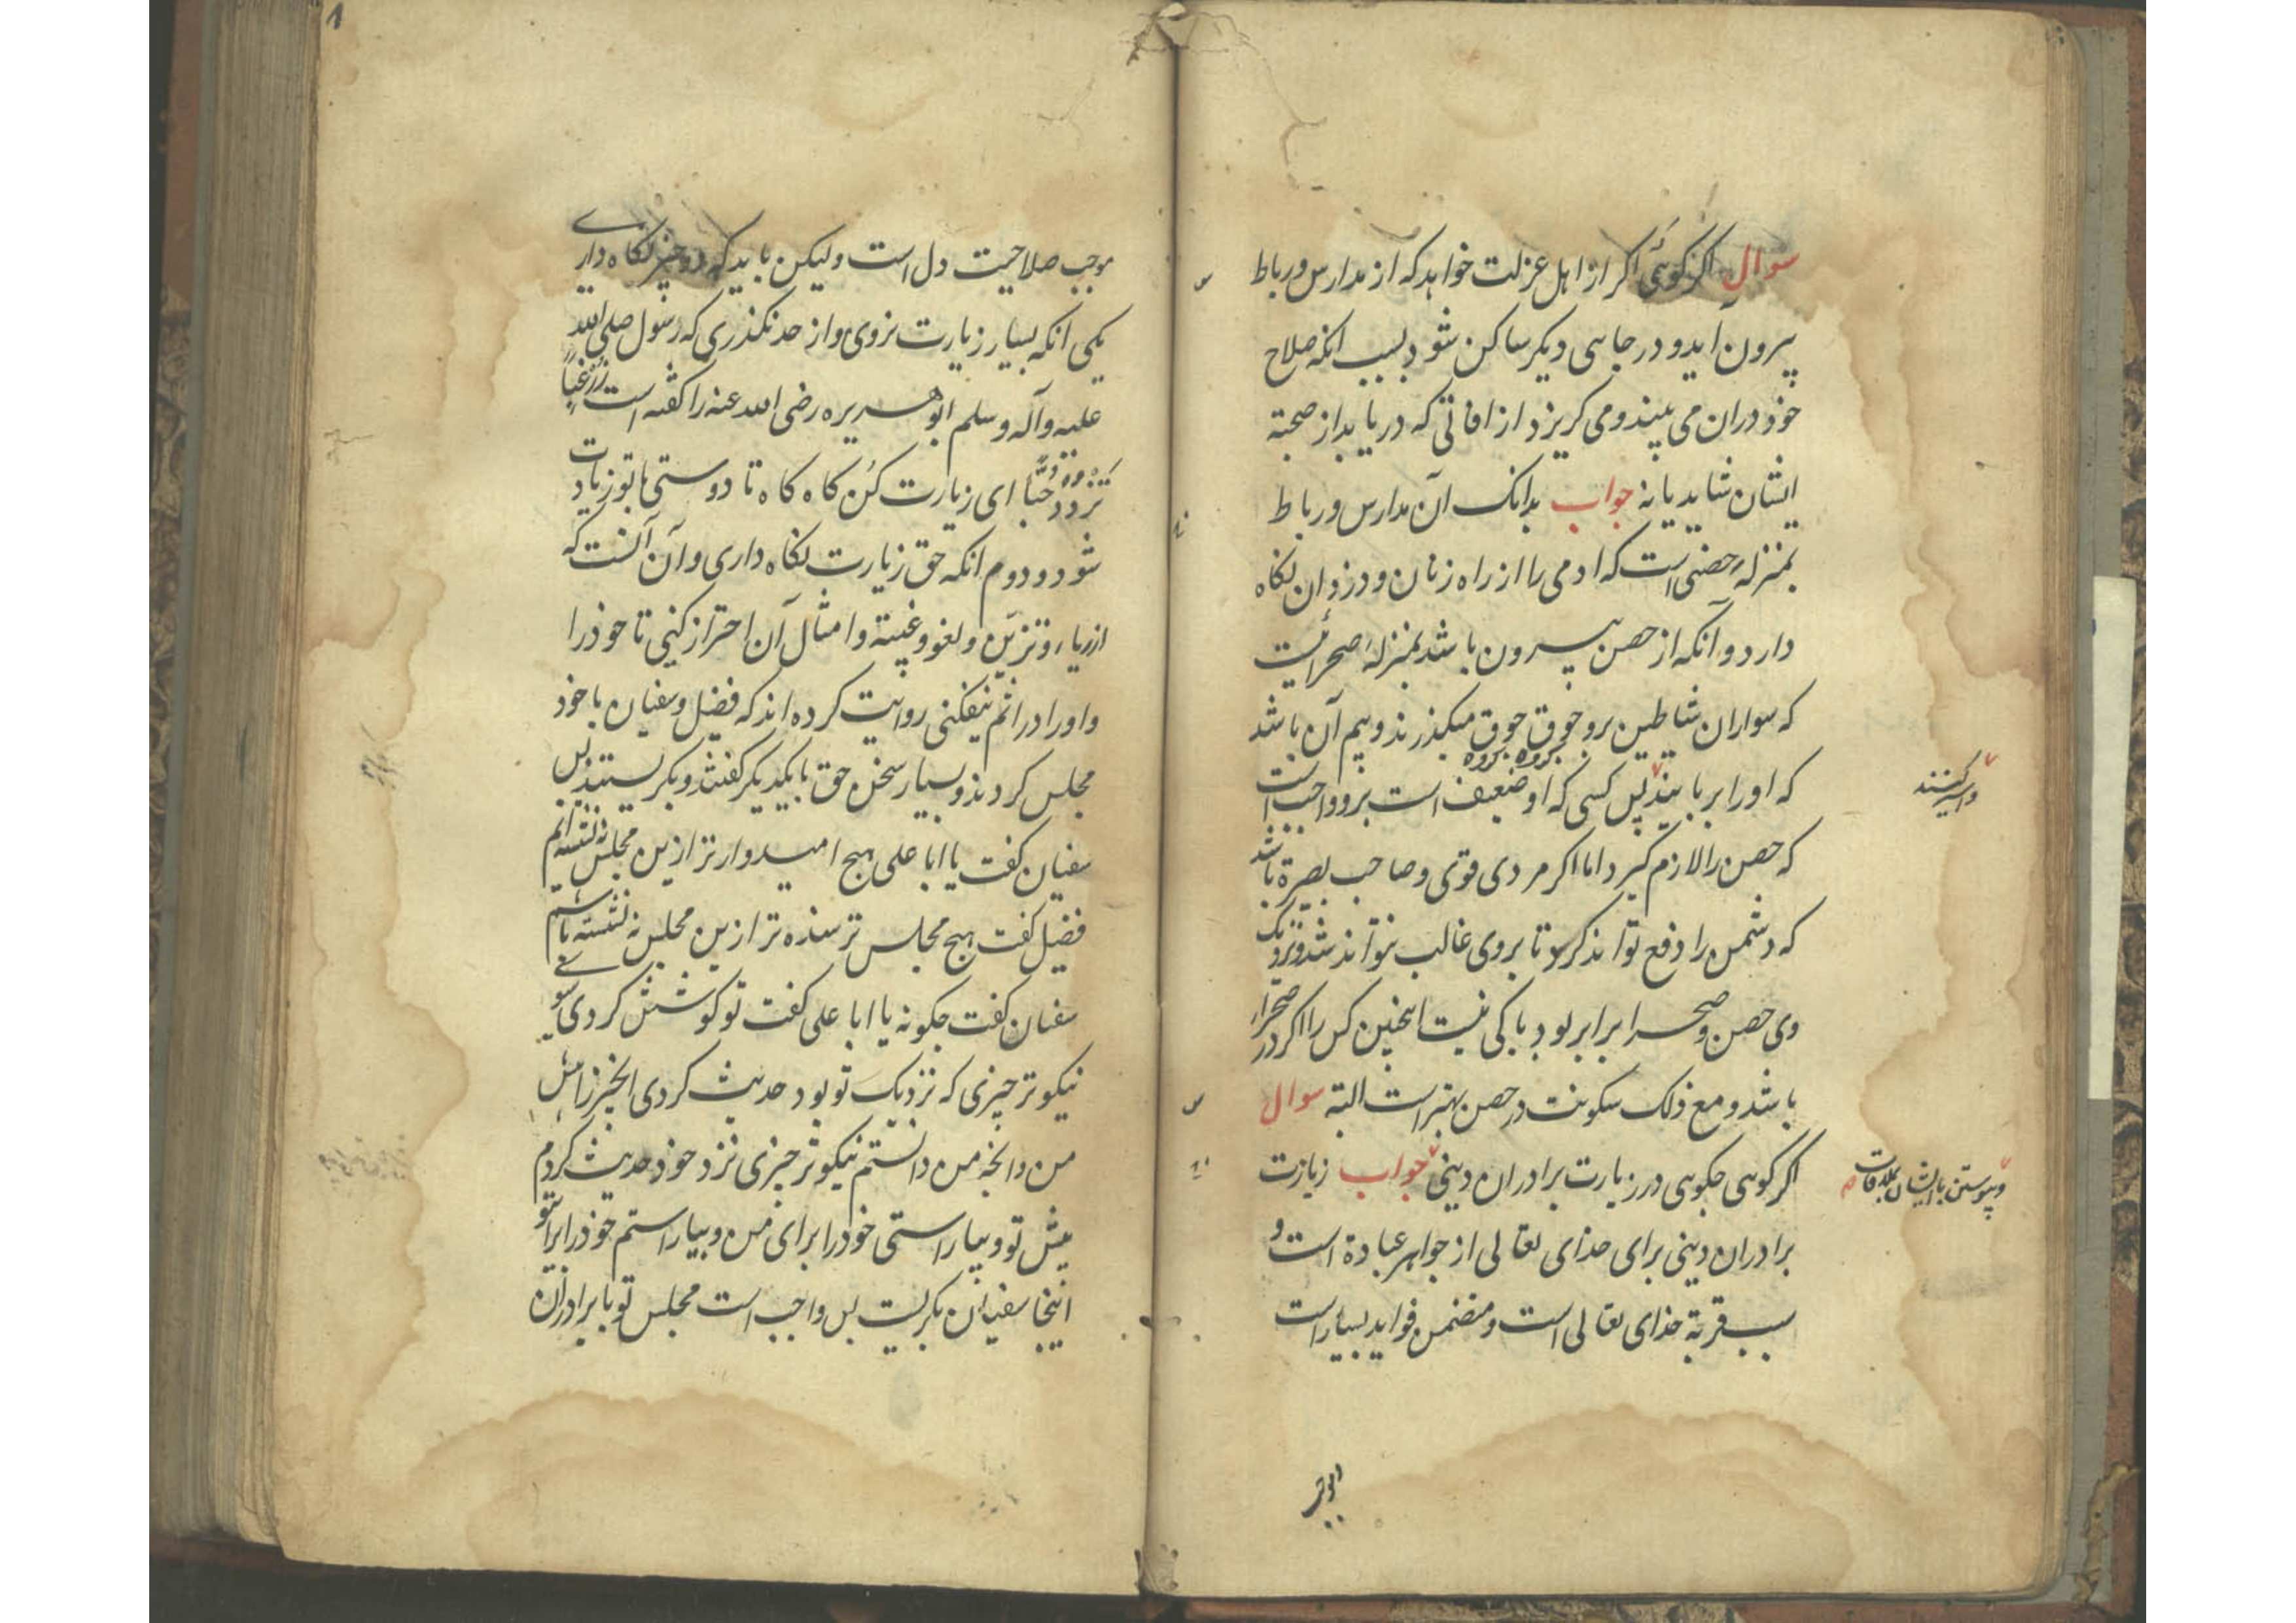 سوال اگر گوئی اگر از اهل عزلت خواهد که از مدارس و رباط
بیرون آید و در جایی دیکر ساکن شود بسبب انکه صلاح
خود در ان می بیند و می کریزد از افاتی که دریابد از صحبة
ایشان شاید یا نه جواب بدانک آن مدارس و رباط
بمنزلهٔ حصنی است که ادمی را از راه زنان و دزدان نکاه
دارد و آنکه از حصن بیرون باشد بمنزلهٔ صحرائیست
که سواران شیاطین برو جوق جوق میکذرند و بیم آن باشد
کروه کروه
که او را بربایند پس کسی که او ضعیف است برو واجب است
و اسیر کنند
که حصن را لازم کیرد اما اکر مردی قوی و صاحب بصیرة باشد
که دشمن را دفع تواند کرد تا بروی غالب نتواند شد و نزدیک
وی حصن و صحرا برابر بود باکی نیست اینچنین کس را اکر در صحرا
باشد و مع ذلک سکونت در حصن بهتر است البته سوال
اکر کوهی چکوهی در زیارت برادران دینی جواب زیارت
و پیوستن با ایشان بملاقات
برادران دینی برای خدای تعالی از جواهر عبادة است و
سبب قربة خدای تعالی است و متضمن فواید بسیار است
موجب صلاحیت دل است ولیکن باید که دو چیز نکاه داری
یکی انکه بسیار زیارت نروی و از حد نکذری که رسول صلی الله
علیه وآله وسلم ابوهریره رضی الله عنه را کفته است زر غبا
تزدد حبا ای زیارت کن کاه کاه تا دوستی با تو زیادت
شود و دوم انکه حق زیارت نکاه داری و آن آنست که
از ریا و تزین و لغو و غیبة و امثال آن احتراز کنی تا خود را
و او را در اثم نیفکنی روایت کرده اند که فضیل و سفیان با خود
مجلس کردند و بسیار سخن حق با یکدیکر کفتند و بکریستند پس
سفیان کفت یا ابا علی هیچ امیدوارتر ازین مجلس نه نشسته ایم
فضیل کفت هیچ مجلس ترسنده تر ازین مجلس نه نشسته باشیم
سفیان کفت چکونه یا ابا علی کفت تو کوشش کردی سوی
نیکوتر چیزی که نزدیک تو بود حدیث کردی انچیز را پیش
من و انچه من دانستم نیکوتر چیزی نزد خود حدیث کردم
پیش تو و بیاراستی خود را برای من و بیاراستم خود را برای تو
اینجا سفیان بکریست پس واجب است مجلس تو با برادران